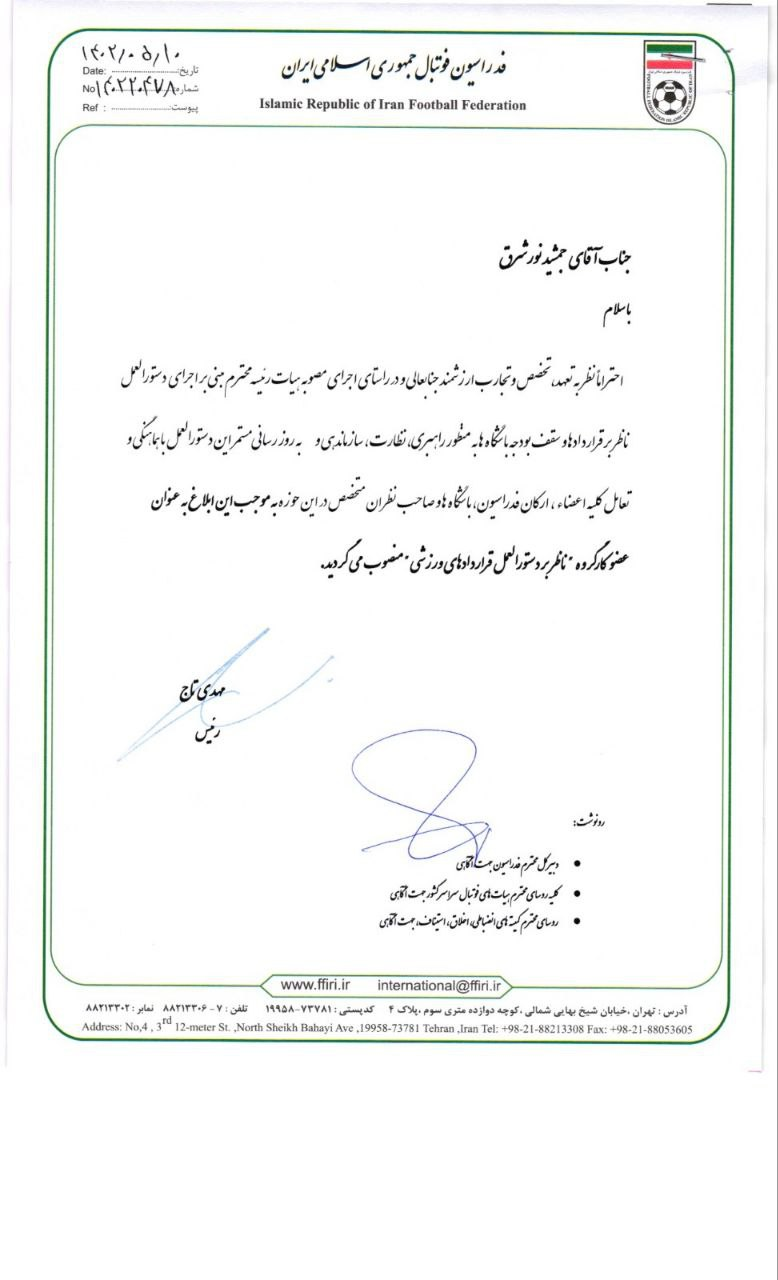 فدراسیون فوتبال جمهوری اسلامی ایران
Islamic Republic of Iran Football Federation
تاریخ: ۱۴۰۲/۰۵/۱۰
Date:
شماره: ۱۴۰۲۲۰۴۷۸
No
پیوست:
Ref :
جناب آقای جمشید نورشرق
با سلام
احتراماً نظر به تعهد، تخصص و تجارب ارزشمند جنابعالی و در راستای اجرای مصوبه هیات رئیسه محترم مبنی بر اجرای دستورالعمل
ناظر بر قراردادها و سقف بودجه باشگاه ها به منظور راهبری، نظارت، سازماندهی و به روز رسانی مستمر این دستورالعمل با هماهنگی و
تعامل کلیه اعضاء ، ارکان فدراسیون، باشگاه ها و صاحب نظران متخصص در این حوزه به موجب این ابلاغ به عنوان
عضو کارگروه "ناظر بر دستورالعمل قراردادهای ورزشی" منصوب می گردید.
مهدی تاج
رئیس
رونوشت:
• دبیرکل محترم فدراسیون جهت آگاهی
• کلیه روسای محترم هیات های فوتبال سراسر کشور جهت آگاهی
• روسای محترم کمیته های انضباطی، اخلاق، استیناف، جهت آگاهی
www.ffiri.ir international@ffiri.ir
آدرس : تهران ،خیابان شیخ بهایی شمالی ،کوچه دوازده متری سوم ،پلاک ۴ کدپستی : ۷۳۷۸۱-۱۹۹۵۸ تلفن : ۷ - ۸۸۲۱۳۳۰۶ نمابر : ۸۸۲۱۳۳۰۲
Address: No,4 , 3rd 12-meter St. ,North Sheikh Bahayi Ave ,19958-73781 Tehran ,Iran Tel: +98-21-88213308 Fax: +98-21-88053605